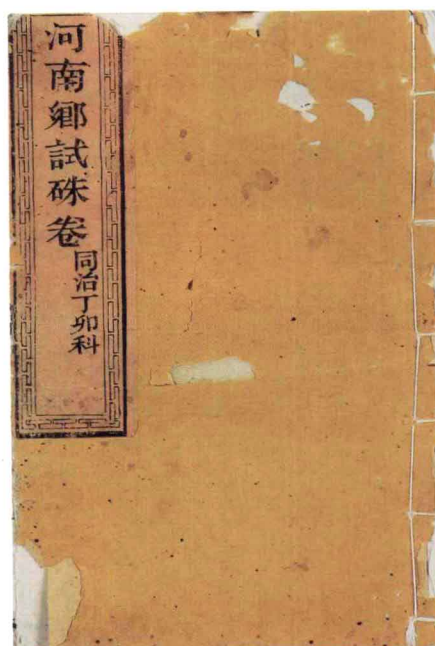 河南鄉試硃卷
同治丁卯科